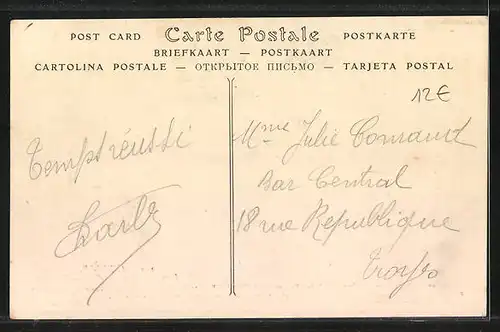 POST CARD Carte Postale POSTKARTE
BRIEFKAART — POSTKAART
CARTOLINA POSTALE — ОТКРЫТОЕ ПИСЬМО — TARJETA POSTAL
12€
Temps réussi
Mme Julie
Bar Central
18 rue Republique